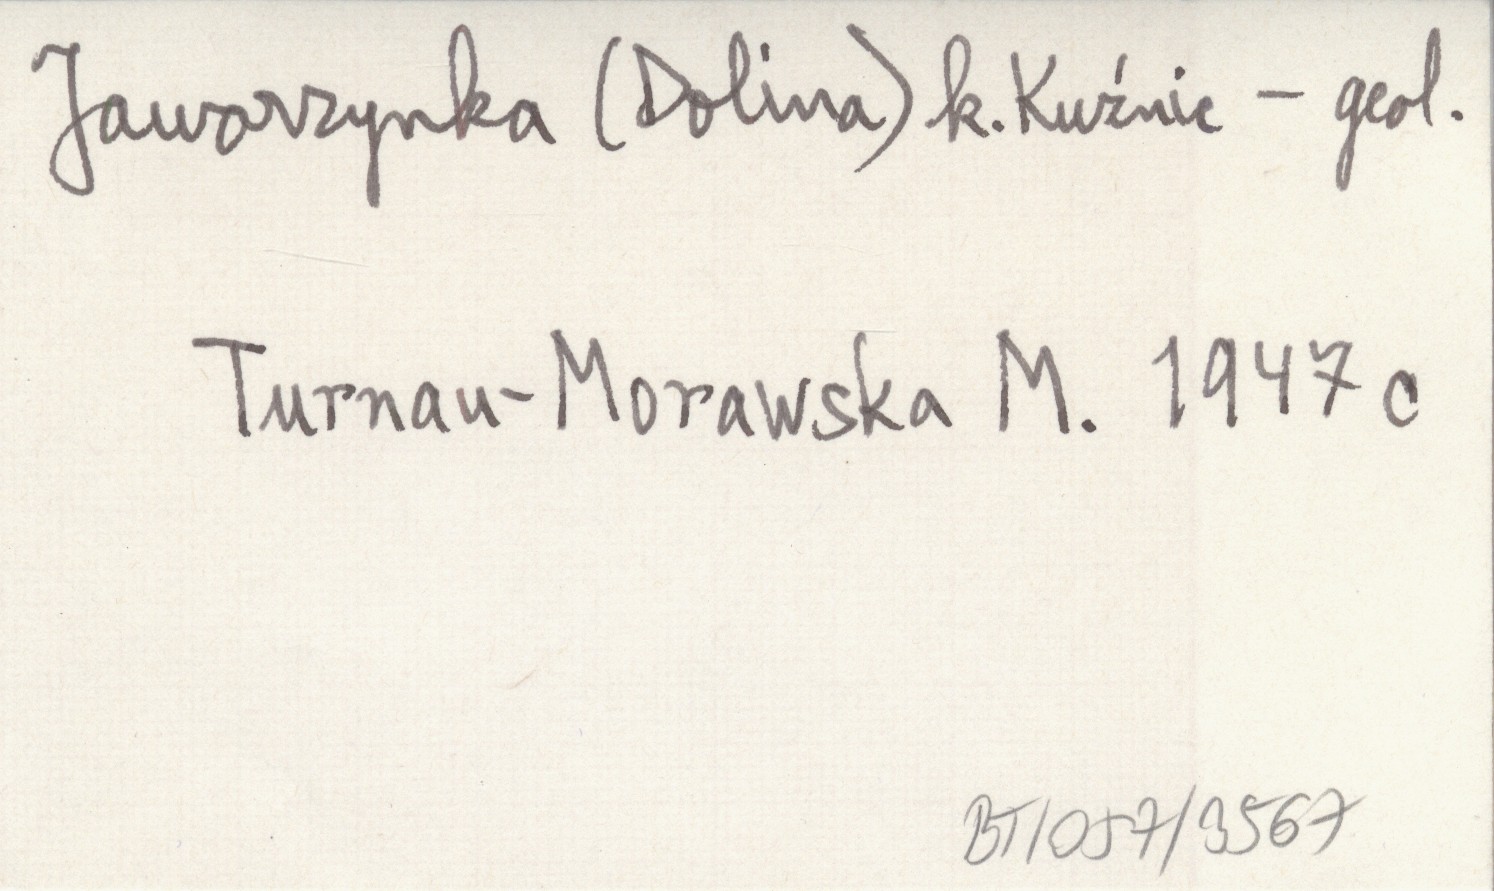 Jaworzynka (Dolina) k. Kuźnic – geol.
Turnau-Morawska M. 1947 c
BT/057/3567